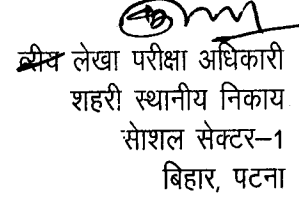 लेखा परीक्षा अधिकारी
शहरी स्थानीय निकाय
सेाशल सेक्टर–1
बिहार, पटना